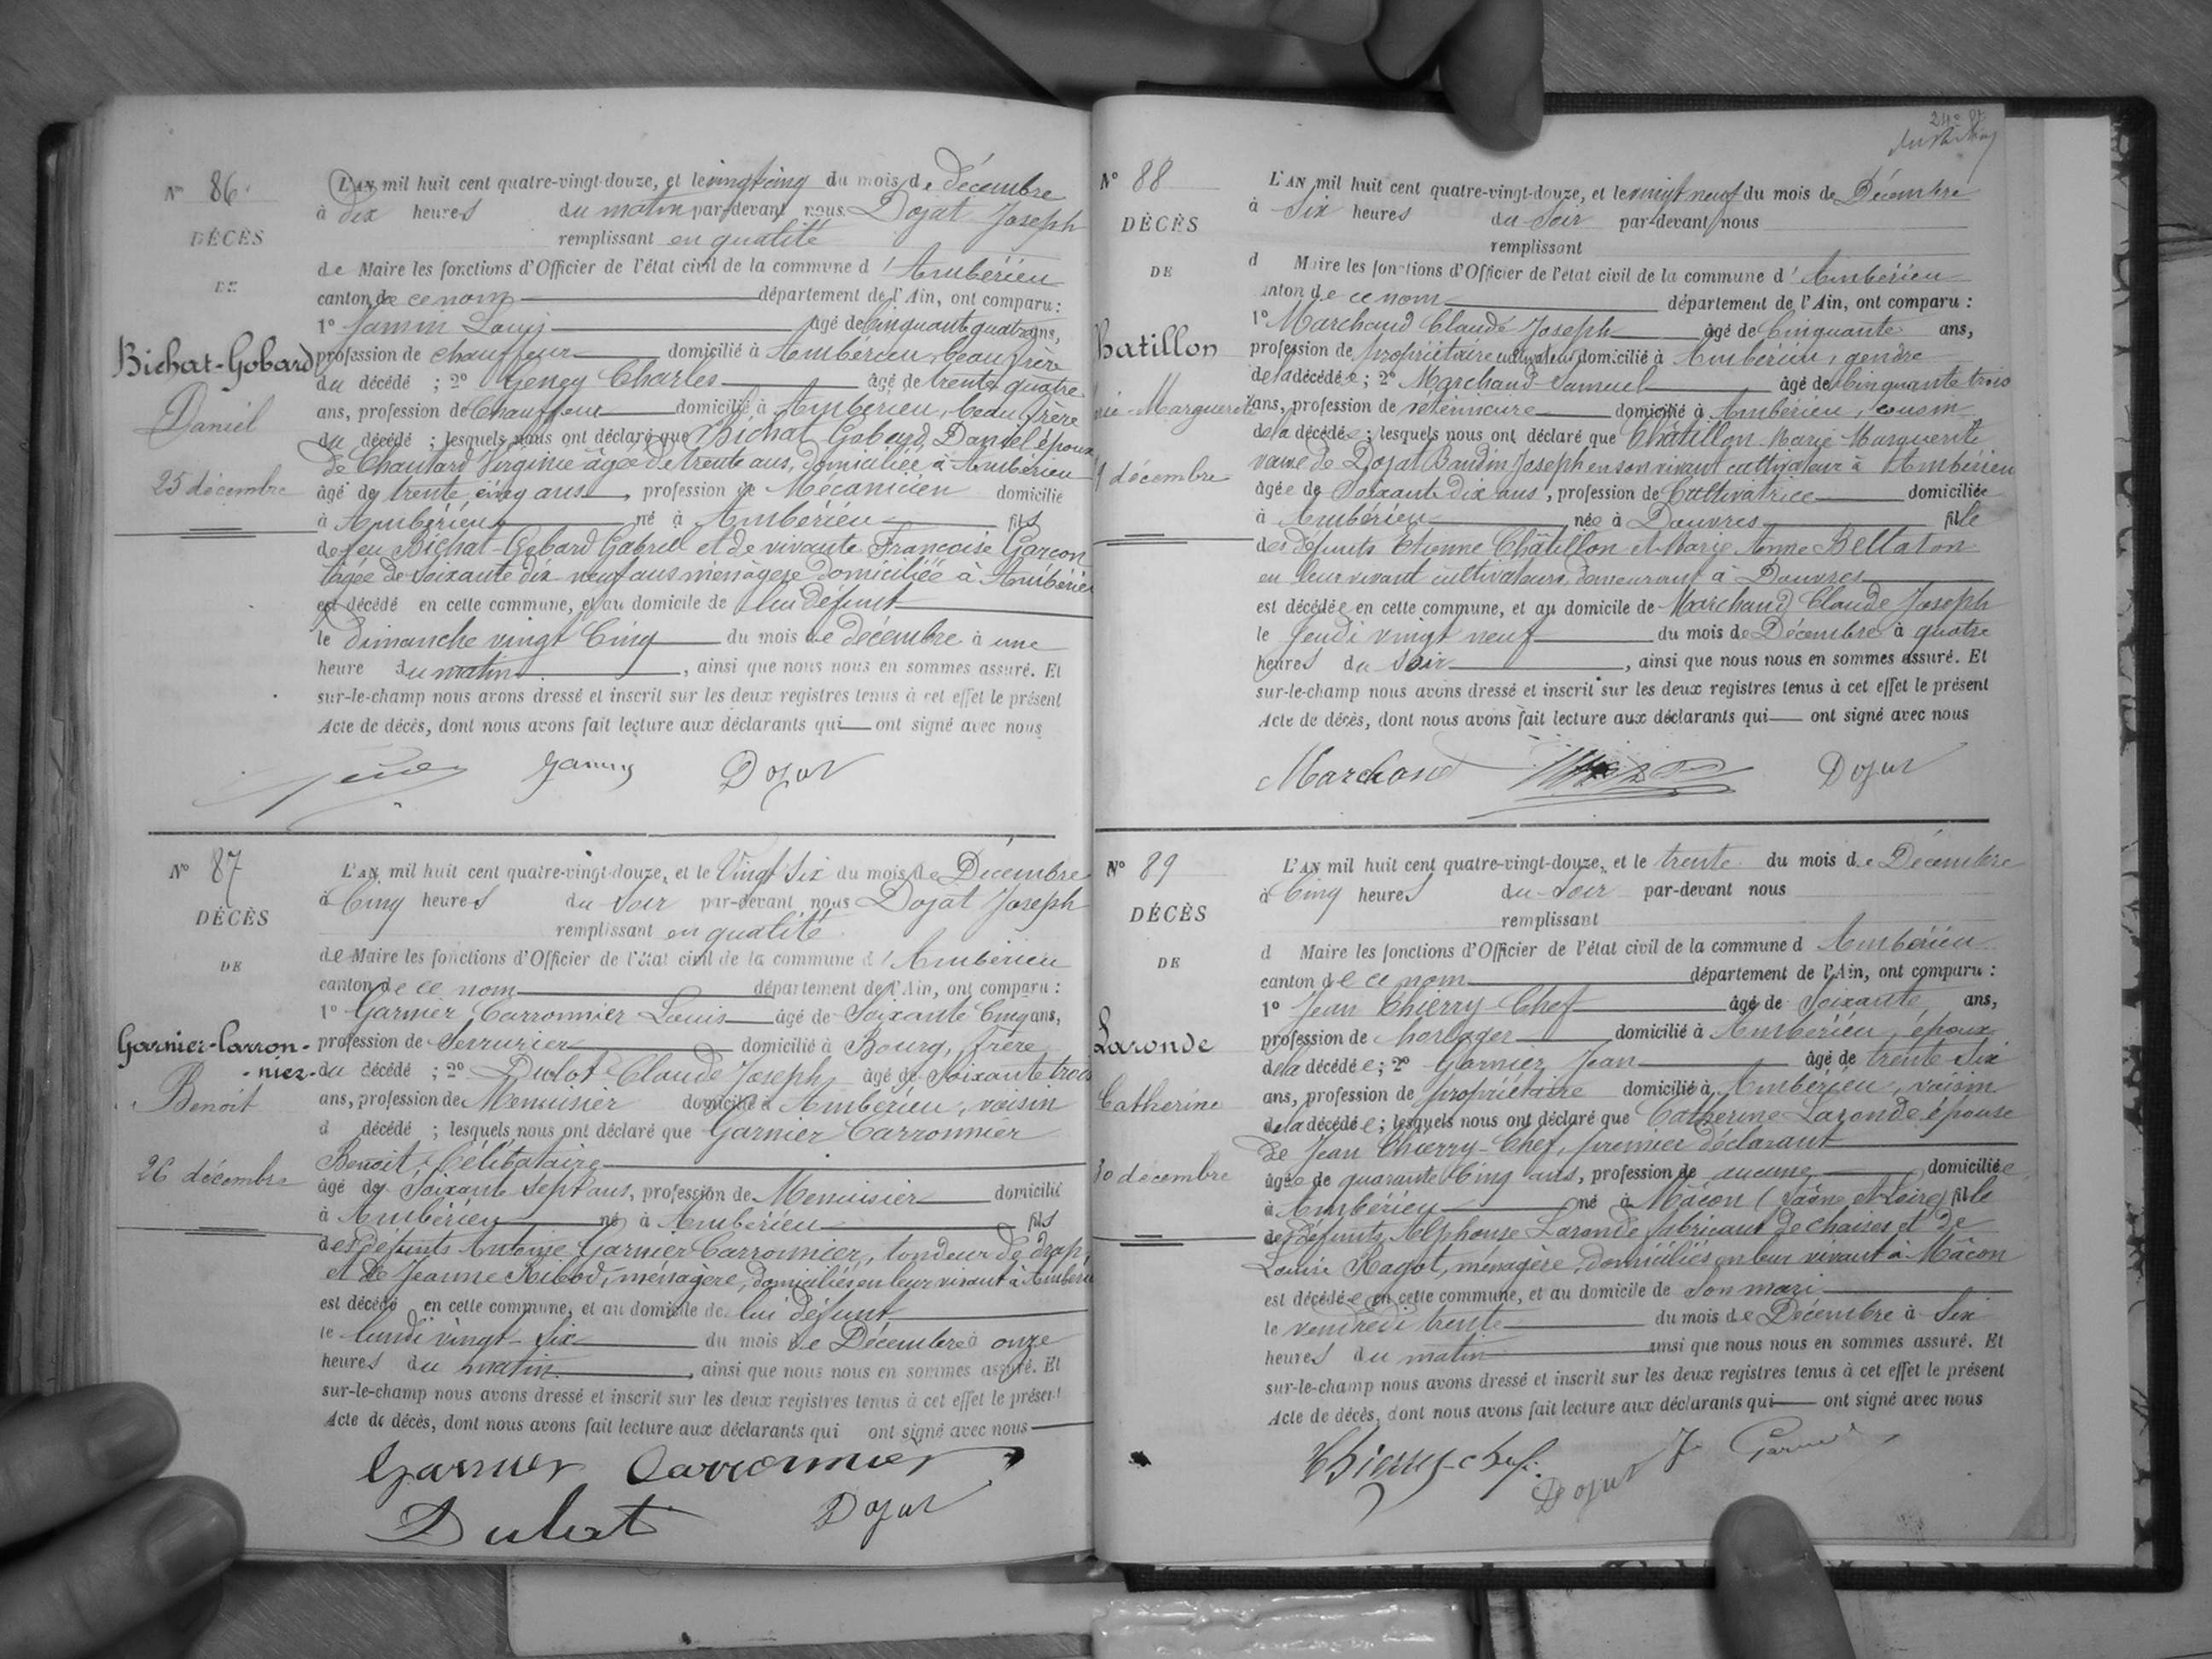 N° 86
DÉCÈS
DE
Bichat-Gobard
Daniel
25 décembre
L'AN mil huit cent quatre-vingt-douze, et le vingt cinq du mois de décembre
à dix heures du matin par-devant nous Dojat Joseph
remplissant en qualité
de Maire les fonctions d'Officier de l'état civil de la commune d'Ambérieu
canton de ce nom département de l'Ain, ont comparu :
1° Jamin Louis âgé de Cinquante quatre ans,
profession de chauffeur domicilié à Ambérieu, beau frère
du décédé ; 2° Geney Charles âgé de trente quatre
ans, profession de Chauffeur domicilié à Ambérieu, beau frère
du décédé ; lesquels nous ont déclaré que Bichat Gobard, Daniel époux
de Chautard Virginie âgée de trente ans, domiciliée à Ambérieu
âgé de trente cinq ans, profession de Mécanicien domicilié
à Ambérieu né à Ambérieu fils
de feu Bichat-Gobard Gabriel et de vivante Françoise Garçon
âgée de soixante dix neuf ans ménagère domiciliée à Ambérieu
est décédé en cette commune, et au domicile de lui défunt
le dimanche vingt Cinq du mois de décembre à une
heure du matin, ainsi que nous nous en sommes assuré. Et
sur-le-champ nous avons dressé et inscrit sur les deux registres tenus à cet effet le présent
Acte de décès, dont nous avons fait lecture aux déclarants qui ont signé avec nous
Jamin Dojat
N° 87
DÉCÈS
DE
Garnier-Carron-
-nier-
Benoit
26 décembre
L'AN mil huit cent quatre-vingt-douze, et le Vingt Six du mois de Décembre
à Cinq heures du Soir par-devant nous Dojat Joseph
remplissant en qualité
de Maire les fonctions d'Officier de l'état civil de la commune d'Ambérieu
canton de ce nom département de l'Ain, ont comparu :
1° Garnier Carronnier Louis âgé de Soixante Cinq ans,
profession de Serrurier domicilié à Bourg, frère
du décédé ; 2° Dulot Claude Joseph, âgé de Soixante trois
ans, profession de Menuisier domicilié à Ambérieu, voisin
d décédé ; lesquels nous ont déclaré que Garnier Carronnier
Benoit Célibataire
âgé de Soixante Sept ans, profession de Menuisier domicilié
à Ambérieu né à Ambérieu fils
des défunts Antoine Garnier Carronnier, tondeur de drap,
et de Jeanne Ribod, ménagère, domiciliés en leur vivant à Ambérieu
est décédé en cette commune, et au domicile de lui défunt
le lundi vingt-Six du mois de Décembre à onze
heures du matin, ainsi que nous nous en sommes assuré. Et
sur-le-champ nous avons dressé et inscrit sur les deux registres tenus à cet effet le présent
Acte de décès, dont nous avons fait lecture aux déclarants qui ont signé avec nous
Garnier Carronnier
Dulot Dojat
N° 88
DÉCÈS
DE
hatillon
rie-Marguerite
9 décembre
L'AN mil huit cent quatre-vingt-douze, et le vingt neuf du mois de Décembre
à Six heures du Soir par-devant nous
remplissant
d Maire les fonctions d'Officier de l'état civil de la commune d'Ambérieu
anton de ce nom département de l'Ain, ont comparu :
1° Marchand Claude Joseph âgé de Cinquante ans,
profession de propriétaire cultivateur domicilié à Ambérieu, gendre
de la décédée ; 2° Marchand Samuel âgé de Cinquante trois
ans, profession de vétérinaire domicilié à Ambérieu, cousin
de la décédée ; lesquels nous ont déclaré que Châtillon Marie Marguerite
veuve de Dojat Baudin Joseph en son vivant cultivateur à Ambérieu
âgée de Soixante dix ans, profession de Cultivatrice domiciliée
à Ambérieu née à Douvres fille
des défunts Etienne Châtillon et Marie Anne Bellaton
en leur vivant cultivateurs, demeurant à Douvres
est décédée en cette commune, et au domicile de Marchand Claude Joseph
le Jeudi vingt neuf du mois de Décembre à quatre
heures du Soir, ainsi que nous nous en sommes assuré. Et
sur-le-champ nous avons dressé et inscrit sur les deux registres tenus à cet effet le présent
Acte de décès, dont nous avons fait lecture aux déclarants qui ont signé avec nous
Marchand Dojat
N° 89
DÉCÈS
DE
Laronde
Catherine
30 décembre
L'AN mil huit cent quatre-vingt-douze, et le trente du mois de Décembre
à Cinq heures du Soir par-devant nous
remplissant
d Maire les fonctions d'Officier de l'état civil de la commune d Ambérieu
canton de ce nom département de l'Ain, ont comparu :
1° Jean Thierry-Chef âgé de Soixante ans,
profession de horloger domicilié à Ambérieu, époux
de la décédée ; 2° Garnier Jean âgé de trente Six
ans, profession de propriétaire domicilié à Ambérieu, voisin
de la décédée ; lesquels nous ont déclaré que Catherine Laronde épouse
de Jean Thierry-Chef, premier déclarant
âgée de quarante Cinq ans, profession de aucune domiciliée
à Ambérieu né à Mâcon (Saône et Loire) fille
des défunts Alphonse Laronde fabricant de chaises et de
Louise Ragot, ménagère, domiciliés en leur vivant à Mâcon
est décédée en cette commune, et au domicile de Son mari
le vendredi trente du mois de Décembre à Six
heures du matin ainsi que nous nous en sommes assuré. Et
sur-le-champ nous avons dressé et inscrit sur les deux registres tenus à cet effet le présent
Acte de décès, dont nous avons fait lecture aux déclarants qui ont signé avec nous
Thierry-chef Dojat J Garnier